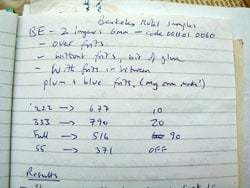 Barbeles Mobil samples
BE - 2 layers 6mm - code 001101 0060
- over frits
- without frits, bit of glue
- With frits in between
plum & blue frits, (my own make')
'222 → 677 10
333 → 790 20
Full → 516 90
55 → 371 OFF
Results